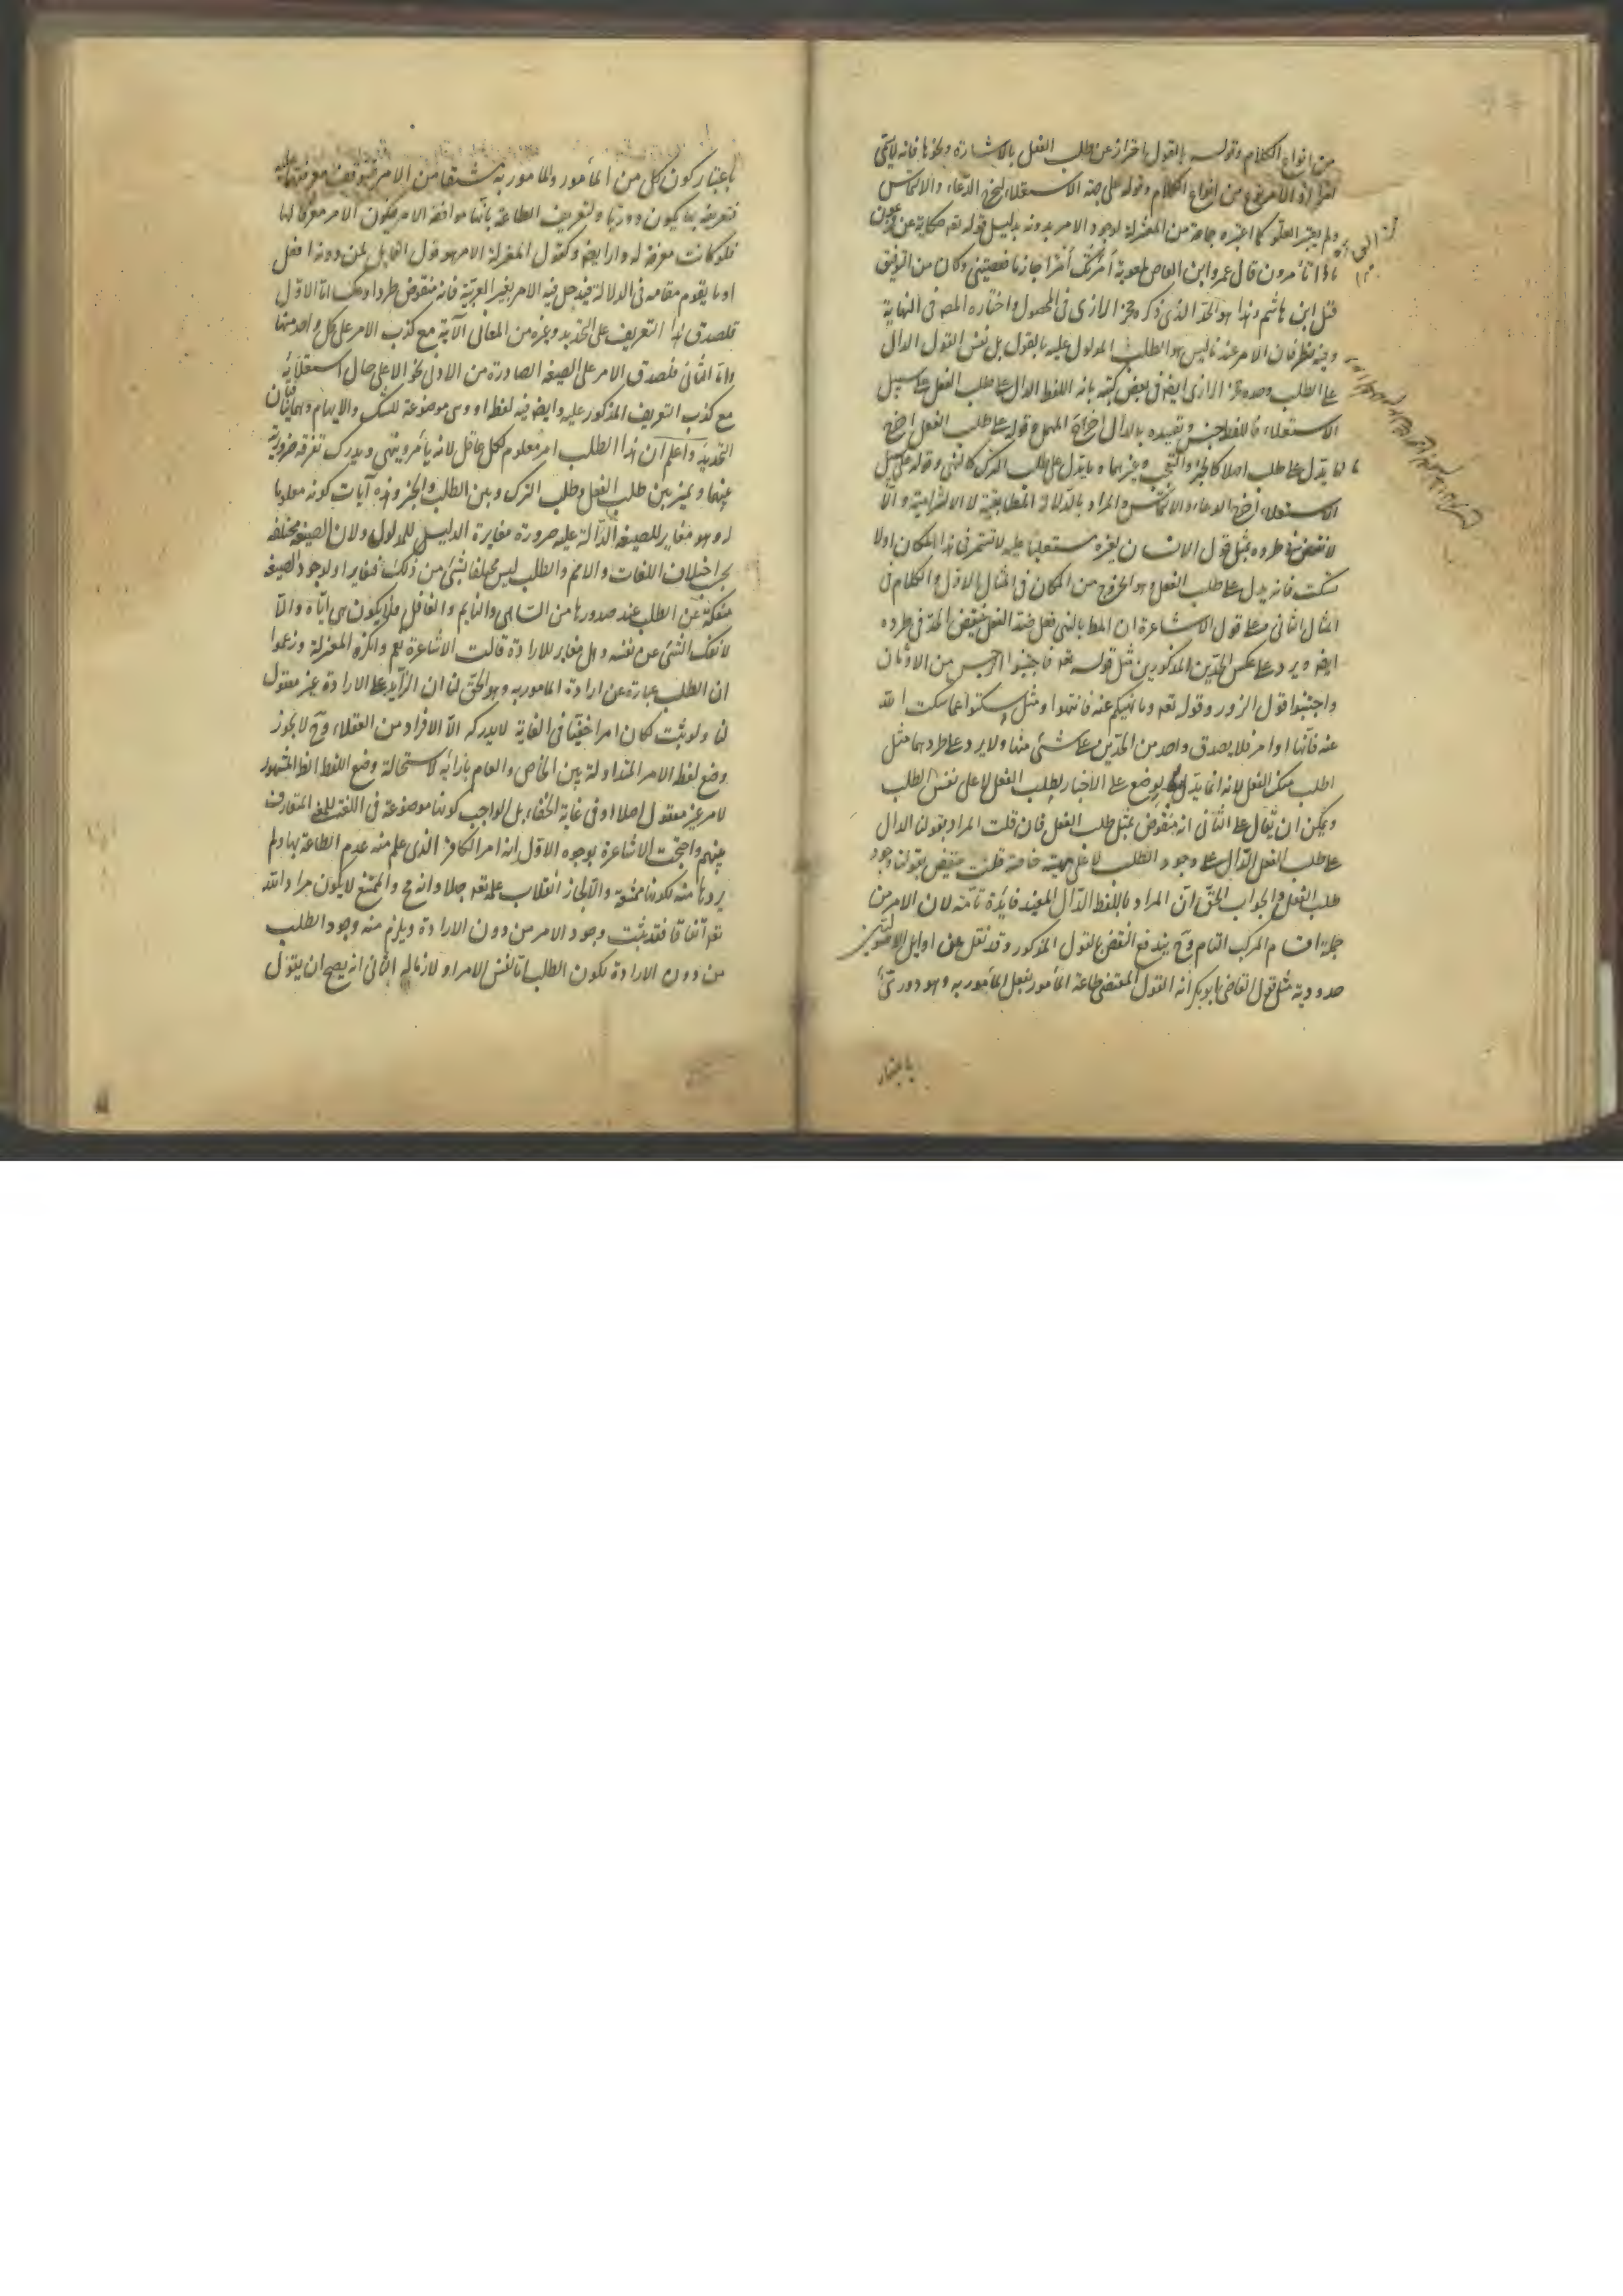 من انواع الكلام وقوله بالقول احتراز عن طلب الفعل بالاشارة ونحوها فانه لا يسمى
امرا اذ الامر نوع من انواع الكلام وقوله على جهة الاستعلاء ليخرج الدعاء والالتماس
ولم يعتبر العلو كما اعتبره جماعة من المعتزلة لوجود الامر بدونه بدليل قوله تعه حكاية عن فرعون
ماذا تأمرون قال عمرو ابن العاص لمعوية أمرتك أمرا جازما فعصيتني وكان من التوفيق
قتل ابن هاشم وهذا هو الحد الذي ذكره فخر الرازي في المحصول واختاره المص في النهاية
وفيه نظر فان الامر عندنا ليس هو الطلب المدلول عليه بالقول بل نفس القول الدال
على الطلب وحده فخر الرازي ايضه في بعض كتبه بانه اللفظ الدال على طلب الفعل على سبيل
الاستعلاء فاللفظ جنس وتقييده بالدال اخراج المهمل وقوله على طلب الفعل اخرج
ما لا يدل على طلب اصلا كالخبر والتعجب وغيرهما وما يدل على طلب الترك كالنهي وقوله على سبيل
الاستعلاء اخرج الدعاء والالتماس والمراد بالدلالة المطابقية لا الالتزامية والا
لانتقض في طرده بمثل قول الانسان لغيره مستعليا عليه لا تستمر في هذا المكان اولا
سكت فانه يدل على طلب الفعل وهو الخروج من المكان في المثال الاول والكلام في
المثال الثاني وعلى قول الاشاعرة ان المط بالنهي فعل ضد الفعل ينتقض الحد في طرده
ايضه ويرد على عكس الحدين المذكورين مثل قوله تعه فاجتنبوا الرجس من الاوثان
واجتنبوا قول الزور وقوله تعه وما نهيكم عنه فانتهوا ومثل اسكتوا عما سكت الله
عنه فانها اوامر فلا يصدق واحد من الحدين على شئ منها ولا يرد على طردهما مثل
اطلب منك الفعل لانه انما يدل بوضع على الاخبار بطلب الفعل لا على نفس الطلب
ويمكن ان يقال على الثاني انه منقوض بمثل طلب الفعل فان قلت المراد بقولنا الدال
على طلب الفعل الدال على وجود الطلب لا على مهية خاصة قلت ينتقض بقولنا وجد
طلب الفعل والجواب الحق ان المراد باللفظ الدال المفيد فايدة تامة لان الامر من
جملة اقسام المركب التام وح يندفع النقض بالقول المذكور وقد نقل عن اوايل الاصوليين
حدود ية مثل قول القاضي ابو بكر انه القول المقتضي طاعة المأمور بفعل المأمور به وهو دوري
باعتبار
باعتبار كون كل من المأمور والمامور به مشتقا من الامر فيتوقف معرفتهما عليه
فتعريفه بهما يكون دوريا ولتعريف الطاعة بانها موافقة الامر فيكون الامر معرفا لها
فلو كانت معرفة له دار ايضه وكقول المعتزلة الامر هو قول القايل لمن دونه افعل
او ما يقوم مقامه في الدلالة فيدخل فيه الامر بغير العربية فانه منقوض طردا وعكسا اما الاول
فلصدق هذا التعريف على التهديد وغيره من المعاني الآتية مع كذب الامر على كل واحد منها
واما الثاني فلصدق الامر على الصيغة الصادرة من الادنى نحو الاعلى حال استعلائه
مع كذب التعريف المذكور عليه وايضه فيه لفظ او وهي موضوعة للشك والابهام وهما ينافيان
التحديد واعلم ان هذا الطلب امر معلوم لكل عاقل لانه يأمر وينهى ويدرك تفرقة ضرورية
بينهما ويميز بين طلب الفعل وطلب الترك وبين الطلب والخبر وهذه آيات كونه معلوما
له وهو مغاير للصيغة الدالة عليه ضرورة مغايرة الدليل للمدلول ولان الصيغة مختلفة
بحسب اختلاف اللغات والامم والطلب ليس مختلفا بشئ من ذلك فتغايرا ولوجود الصيغة
منفكة عن الطلب عند صدورها من الساهي والنايم والغافل فلا يكون هي اياه والا
لانفك الشئ عن نفسه وهل مغاير للارادة قالت الاشاعرة نعم وانكره المعتزلة وزعموا
ان الطلب عبارة عن ارادة المامور به وهو الحق لنا ان الزايد على الارادة غير معقول
لنا ولو ثبت لكان امرا خفيا في الغاية لا يدركه الا الافراد من العقلاء وح لا يجوز
وضع لفظ الامر المتداولة بين الخاص والعام بازائه لاستحالة وضع اللفظ الظ المشهور
لامر غير معقول اصلا او في غاية الخفاء بل الواجب كونها موضوعة في اللغة للمعنى المتعارف
بينهم واحتجت الاشاعرة بوجوه الاول انه امر الكافر الذي علم منه عدم الطاعة بها ولم
يردها منه لكونها ممتنعة والا لجاز انقلاب علمه تعه جهلا وانه مح والممتنع لا يكون مرادا لله
تعه اتفاقا فقد ثبت وجود الامر من دون الارادة ويلزم منه وجود الطلب
من دون الارادة لكون الطلب اما نفس الامر او لازما له الثاني انه يصح ان يقول